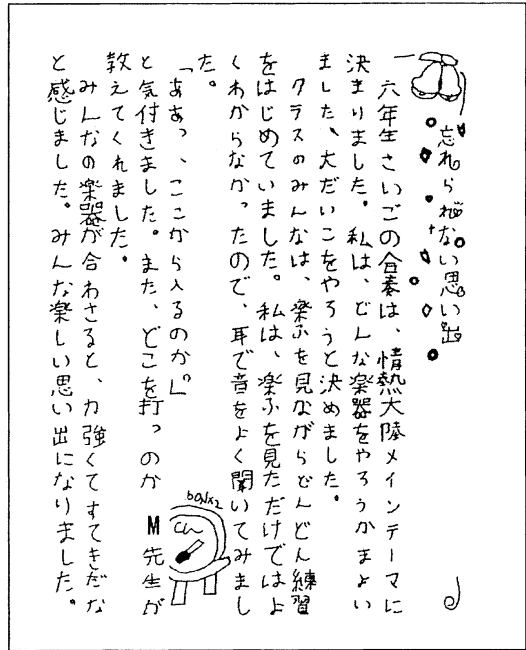 忘れられない思い出
六年生さいごの合奏は、情熱大陸メインテーマに
決まりました。私は、どんな楽器をやろうかまよい
ました、大だいこをやろうと決めました。
クラスのみんなは、楽ふを見ながらどんどん練習
をはじめていました。私は、楽ふを見ただけではよ
くわからなかったので、耳で音をよく聞いてみまし
た。
「ああっ、ここから入るのか。」
と気付きました。また、どこを打つのかM先生が
教えてくれました。
みんなの楽器が合わさると、力強くてすてきだな
と感じました。みんな楽しい思い出になりました。